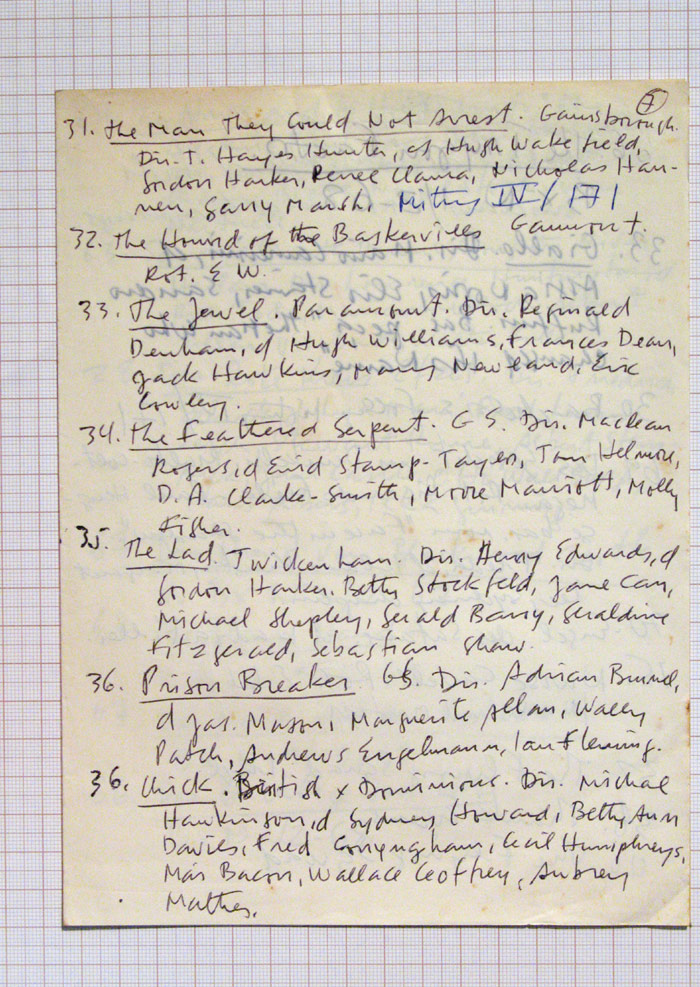 7
31. The Man They Could Not Arrest. Gainsborough.
Dir. T. Hayes Hunter, d Hugh Wakefield,
Gordon Harker, Renee Clama, Nicholas Han-
nen, Garry Marsh. IV / 171
32. The Hound of the Baskervilles Gaumont.
Rot. E W.
33. The Jewel. Paramount. Dir. Reginald
Denham, d Hugh Williams, Frances Dean,
Jack Hawkins, Mary Newland, Eric
Cowley.
34. The Feathered Serpent. G S. Dir. Maclean
Rogers, d Enid Stamp-Taylor, Tom Helmore,
D. A. Clarke-Smith, Moore Marriott, Molly
Fisher.
35. The Lad. Twickenham. Dir. Henry Edwards, d
Gordon Harker. Betty Stockfeld, Jane Carr,
Michael Shepley, Gerald Barry, Geraldine
Fitzgerald, Sebastian Shaw.
36. Prison Breaker GS. Dir. Adrian Brunel,
d Jas. Mason, Marguerite Allan, Wally
Patch, Andrews Engelmann, Ian Fleming.
36. Chick. British & Dominions. Dir. Michael
Hankinson, d Sydney Howard, Betty Ann
Davies, Fred Conyngham, Cecil Humphreys,
Mai Bacon, Wallace Geoffrey, Aubrey
Mather.